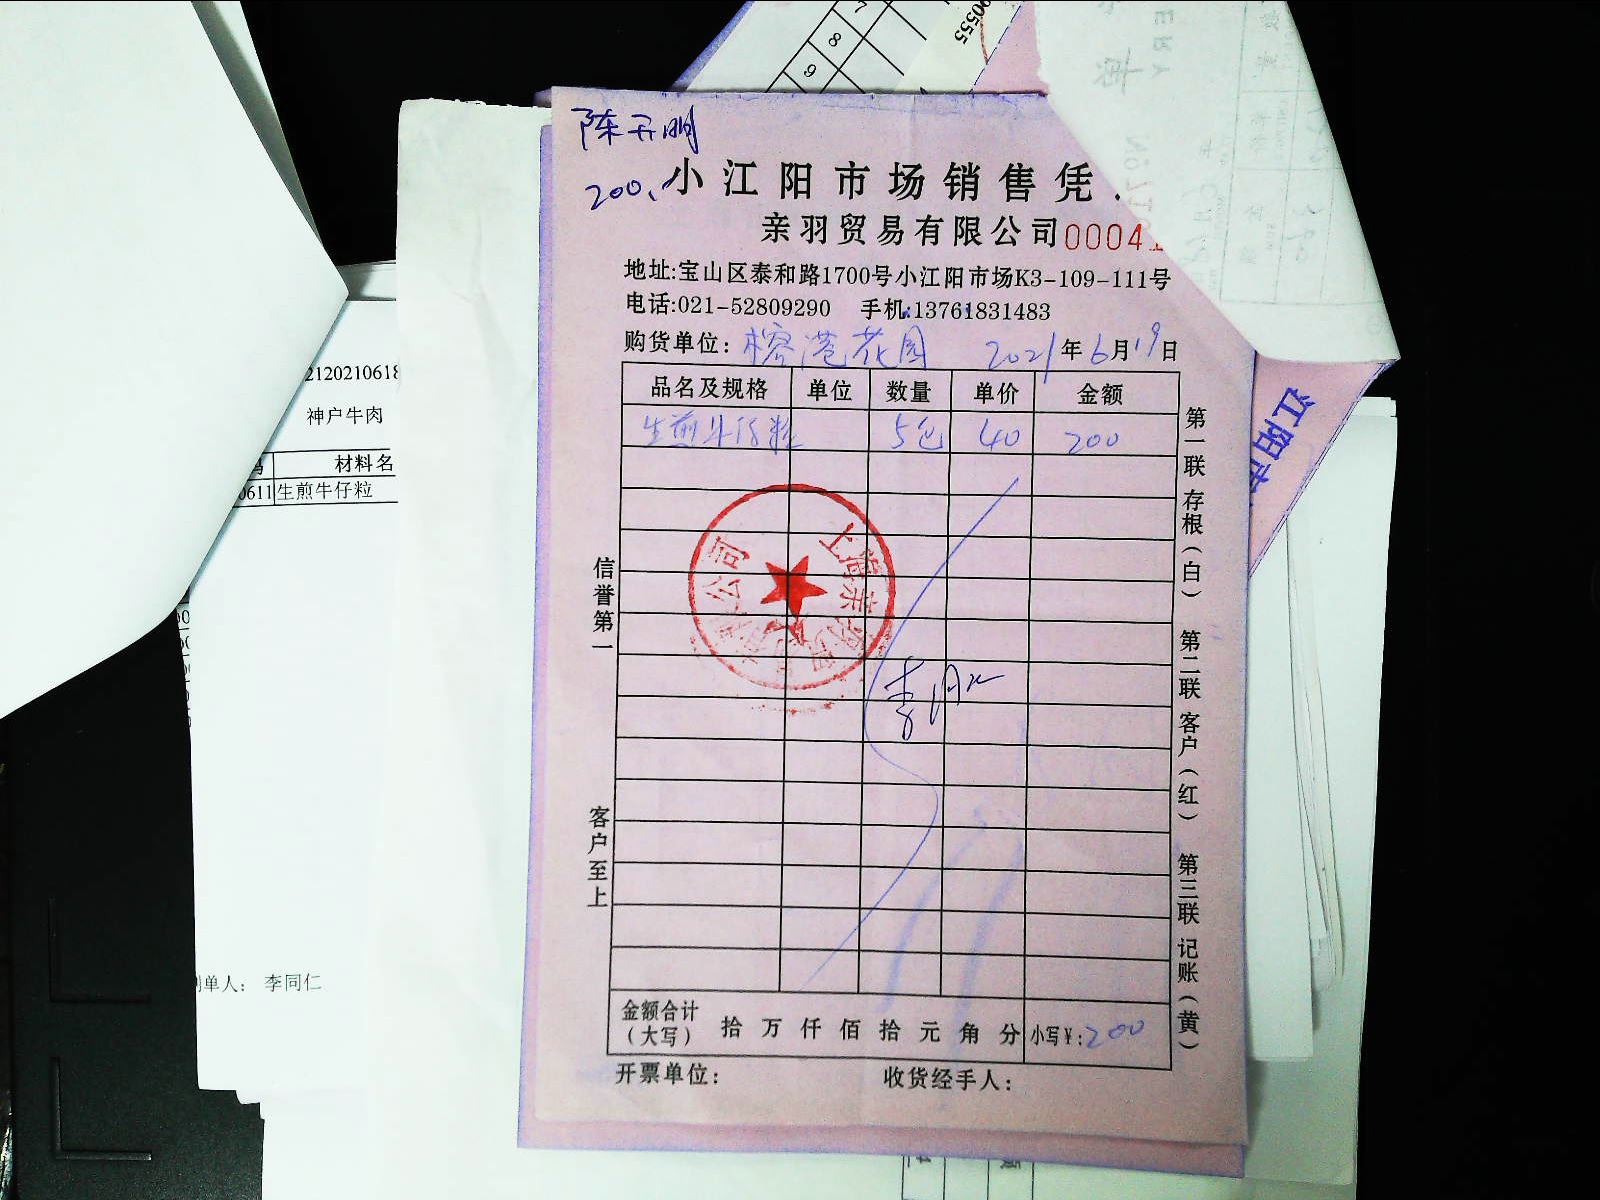 陈开明
200.
小江阳市场销售凭
亲羽贸易有限公司 0004
地址:宝山区泰和路1700号小江阳市场K3-109-111号
电话:021-52809290 手机:13761831483
购货单位: 榕港花园 2021年6月19日
品名及规格 单位 数量 单价 金额
生煎牛仔粒 5包 40 200
信誉第一
客户至上
第一联 存根(白) 第二联 客户(红) 第三联 记账(黄)
上海亲羽贸易有限公司
金额合计(大写) 拾 万 仟 佰 拾 元 角 分 小写¥:200
开票单位: 收货经手人:
2120210618
神户牛肉
材料名
0611 生煎牛仔粒
制单人: 李同仁
7
8
9
00555
江阳市